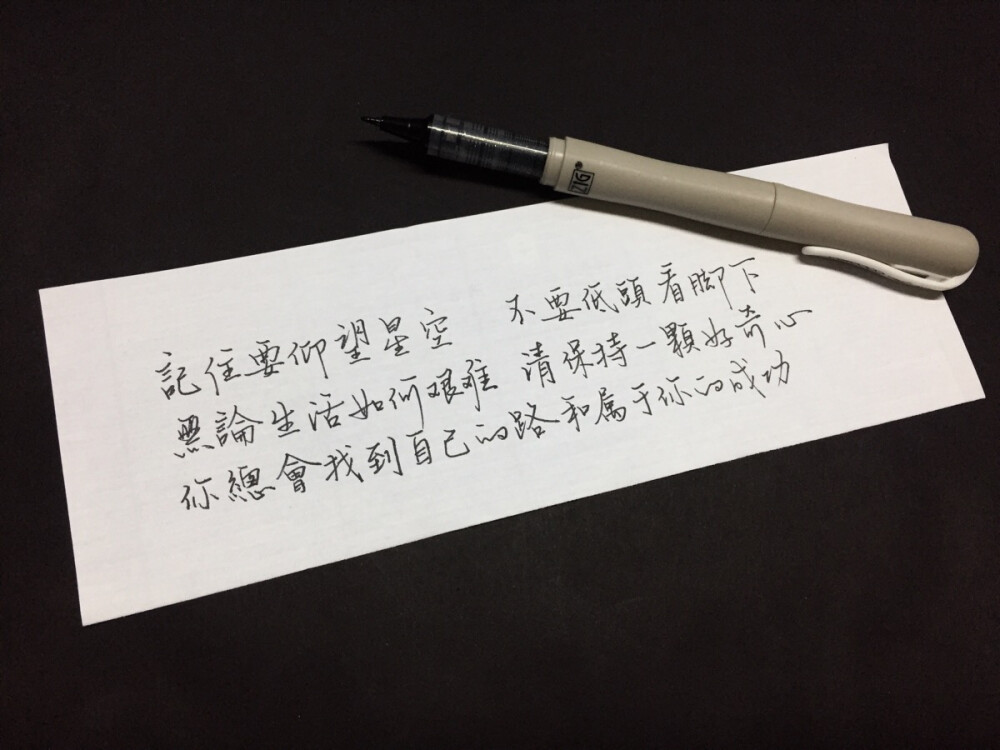 ZIG
記住要仰望星空 不要低頭看脚下
無論生活如何艰难 清保持一顆好奇心
你總會找到自己的路和属于你的成功